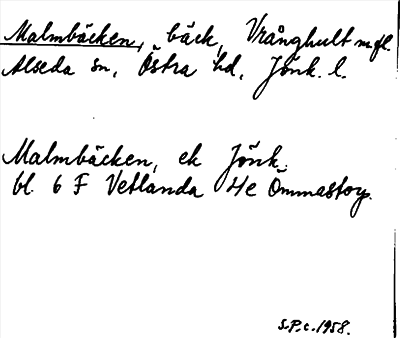 Malmbäcken, bäck, Vrånghult m.fl.
Alseda sn, Östra hd, Jönk. l.
Malmbäcken, ek Jönk.
bl. 6 F Vetlanda 4e Ömmastorp.
S.P.c. 1958.